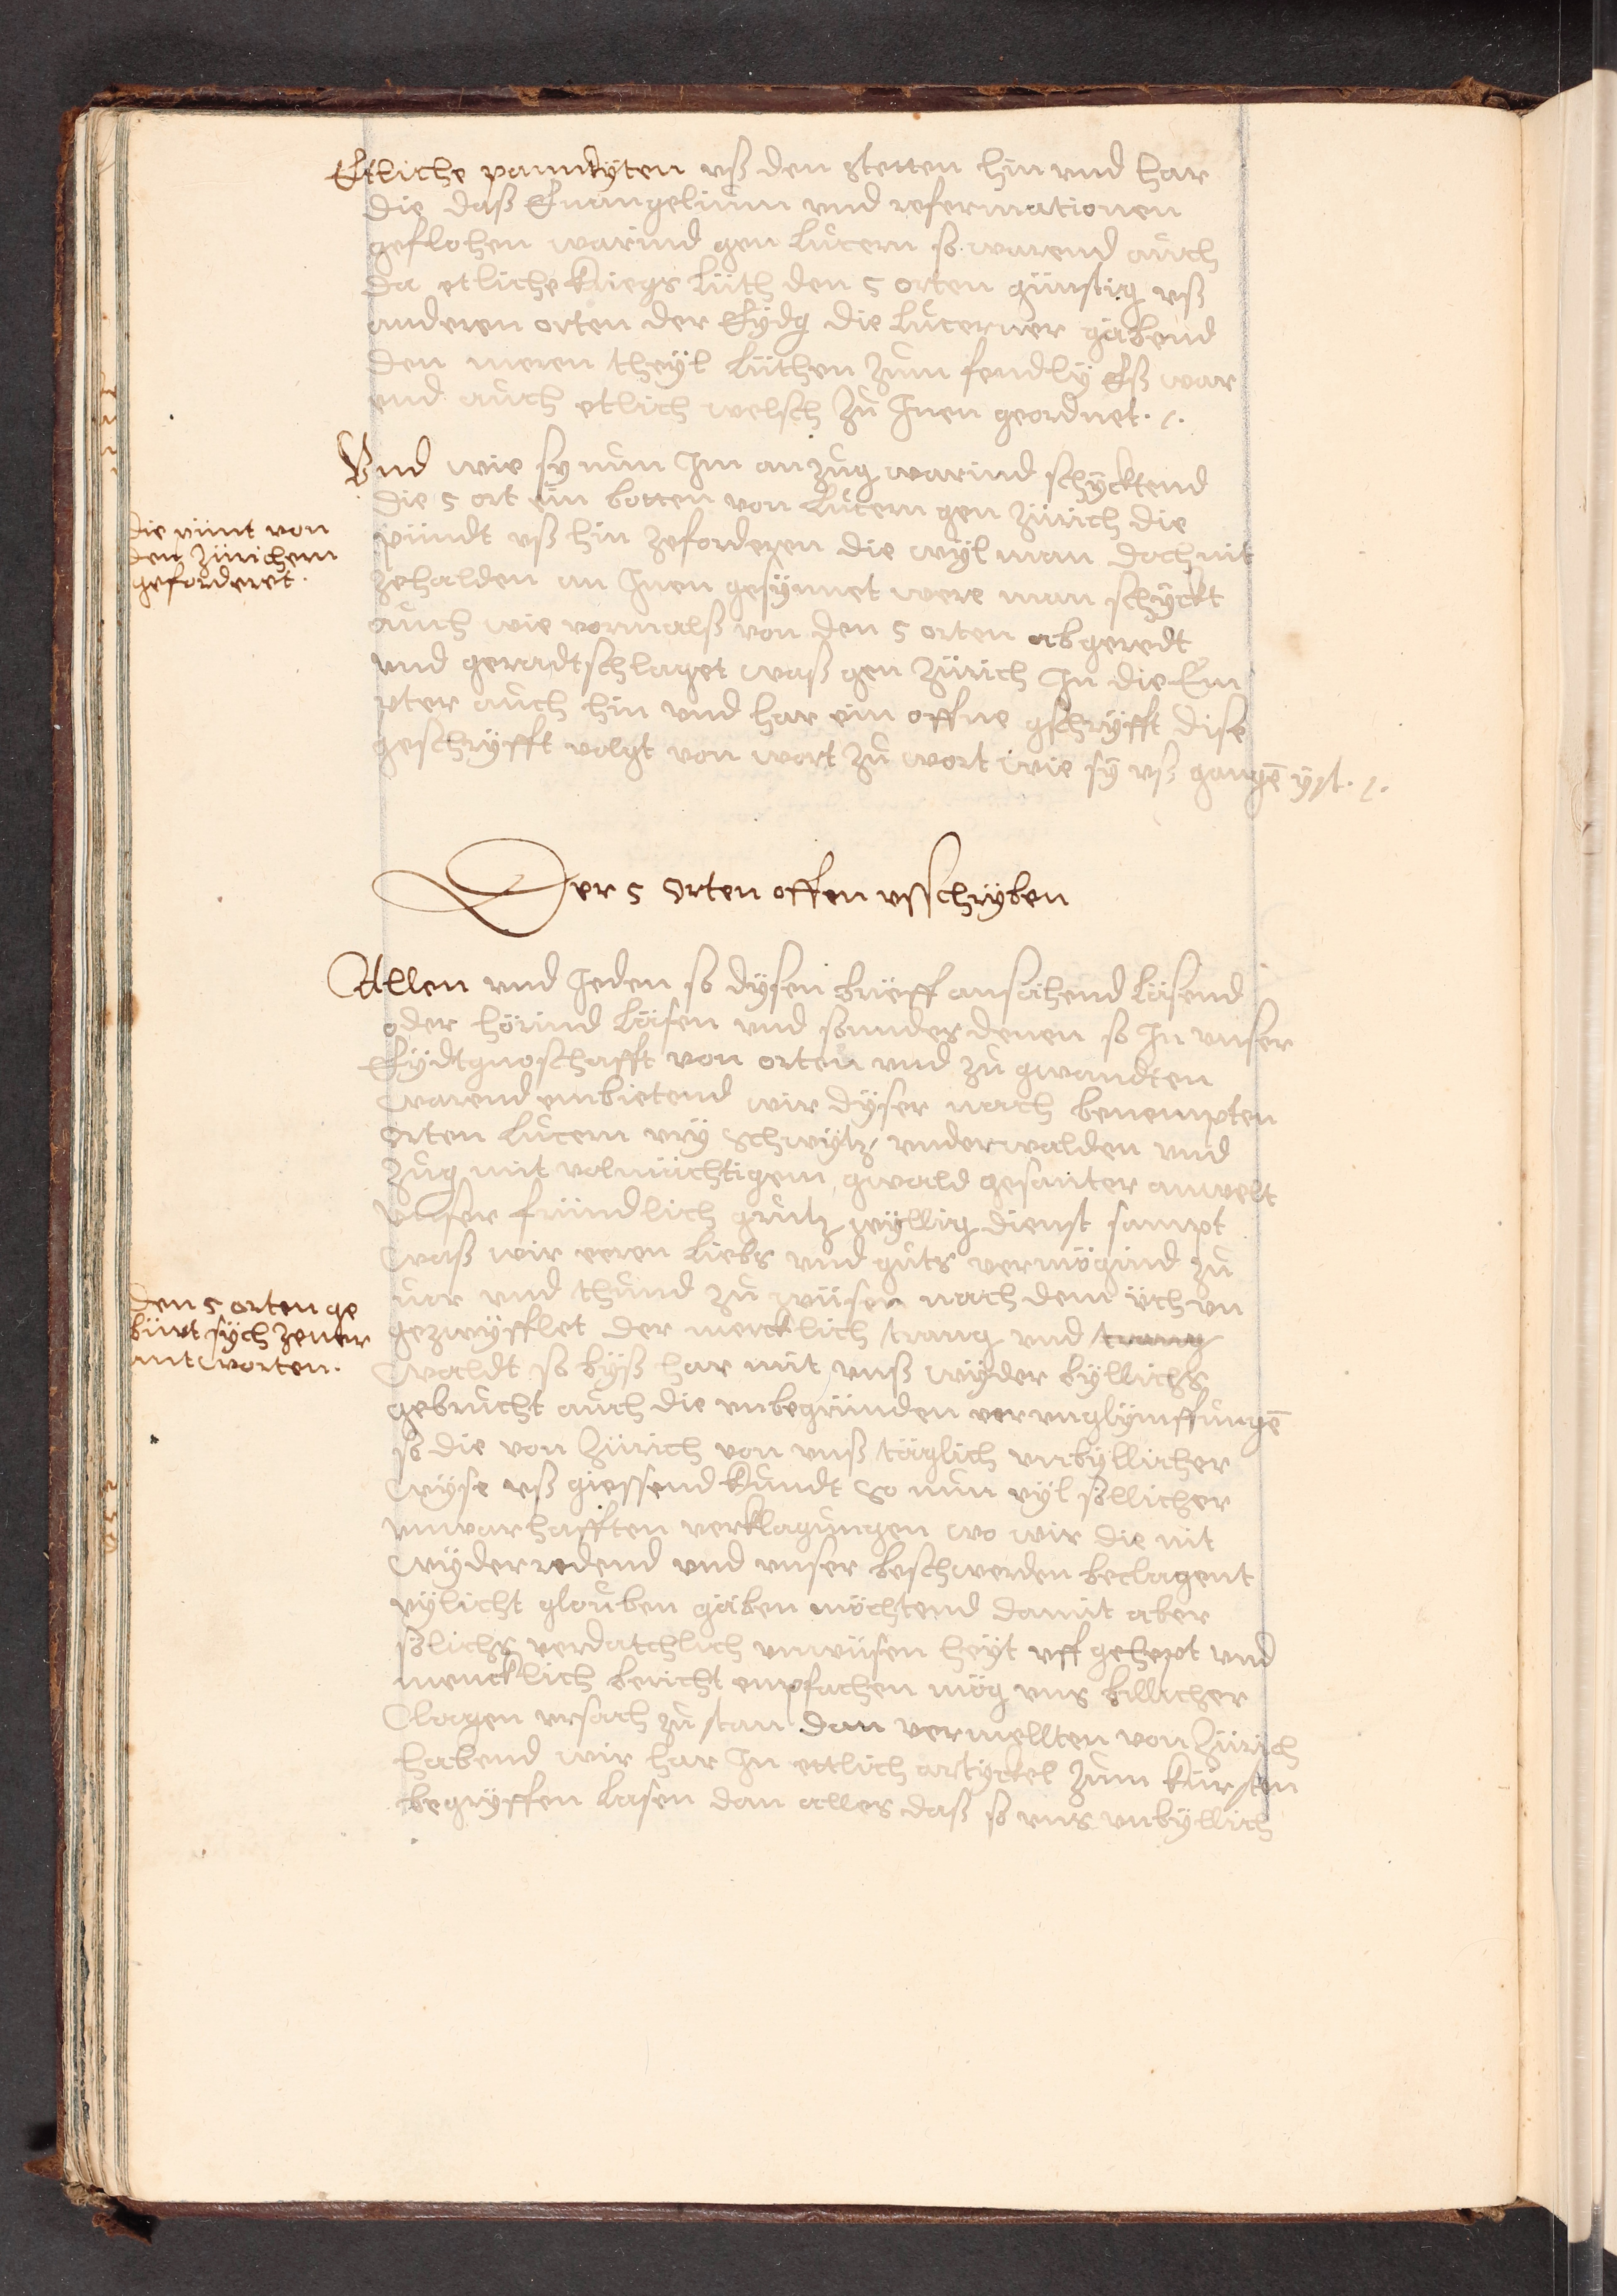 Etliche panndyten uß den stetten hin vnd har
die daß Euangelium vnd refermationen
geflohen warind gen Lucern so warend auch
da etliche kriegs lüth den 5 orten günstig uß
anderen orten der Eydg die Lucerner gabend
den meren theyl lüthen zum fendly Eß war
end auch etlich welsch zů Inen geordnet.
Vnd wie sy nun Im anzug warind schycktend
die 5 ort ein botten von Lucern gen Zürich die
pündt uß hin zeforderen die wyl man doch nit
zehalden an Inen gesynnet were man schyckt
auch wie vormalß von den 5 orten abgeredt
vnd geradtschlaget waß gen Zürich In die Em
pter auch hin vnd har ein offne gschryfft dise
geschryfft volgt von wort zů wort wie sy uß gangē yst.
die pünt von
den Zürichern
geforderet.
Der 5 Orten offen ußschryben
Allen vnd Jeden so dysen brieff ansähend läsend
oder hörind läsen vnd sunders denen so In unser
Eydtgnoschafft von orten vnd zů gwandten
warend embietend wir dyser nach benempten
orten Lucern vry Schwytz vnderwalden vnd
Zug mit volmächtigem gwald gesanter anwelt
Vnser fründlich grutz wyllig dienst sampt
waß wir eeren liebs vnd gůts vermögind zů
uor vnd thund zů wüsen nach dem üch vn
gezwyfflet der mercklich trang vnd trang
waldt so byß har mit vnß wyder byllichs
gebrucht auch die vnbegründen verunglymffungē
so die von Zürich von vnß täglich vnbyllicher
wyse uß giessend kundt So nun vyl sollicher
vnwarhafften verklagungen wo wir die nit
wyderredend vnd vnser beschwerden beclagent
vylicht glouben gäben möchtend damit aber
sölichs verdatchlich vnwüsen heyt uff gehept vnd
mencklich bericht empfachen mög vns billicher
clagen ursach zů stan dan vermellten von Zürich
habend wir har In ettlich artyckel zum kürsten
begryffen lasen dan alles daß so vns vnbyllich
den 5 orten ge
bürt sych zeuer
antworten.